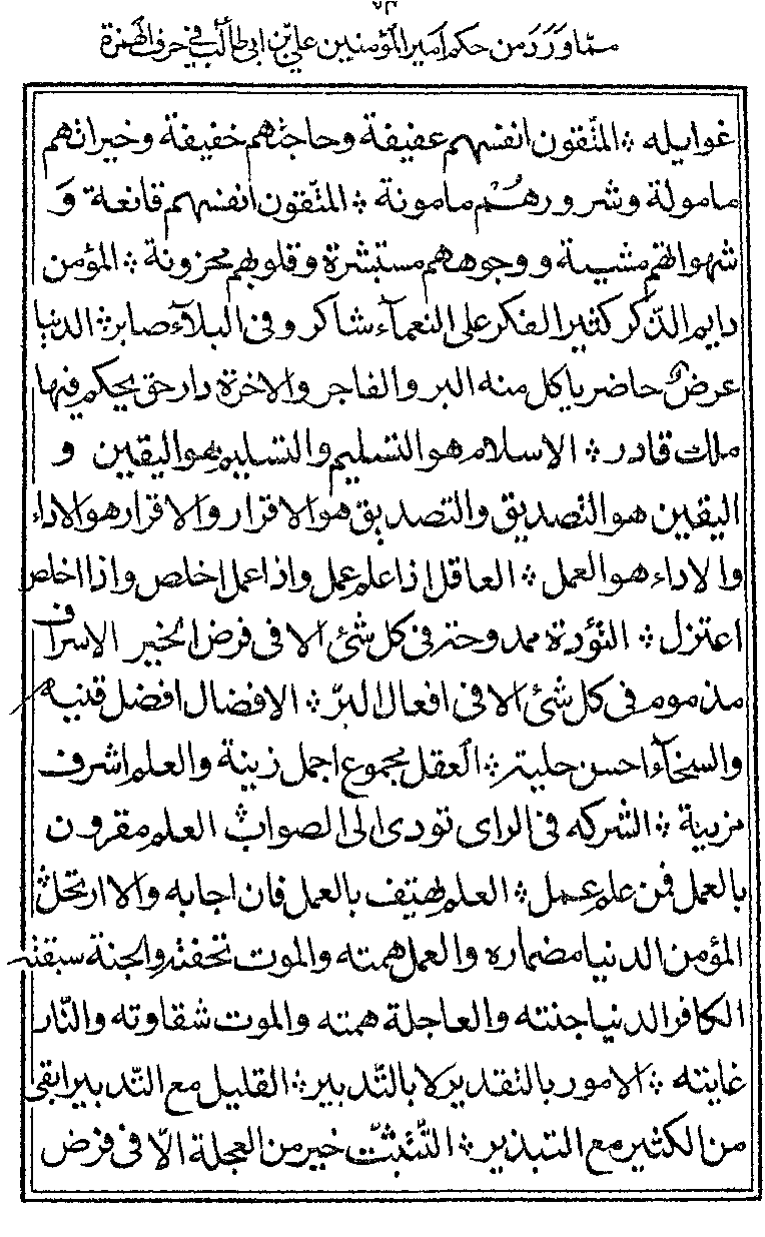 ٧٣
ممّا وَرَدَ من حكم امير المؤمنين علي بن ابي طالب في حرف الهمزة
غوايله ∴ المتّقون انفسهم عفيفة وحاجتهم خفيفة وخيراتهم
مامولة وشرورهُم مامونة ∴ المتّقون انفسهم قانعة وَ
شهواتهم ميتة ووجوههم مستبشرة وقلوبهم محزونة ∴ المؤمن
دايم الذّكر كثير الفكر على النعمآء شاكر وفي البلآء صابر ∴ الدنيا
عرضٌ حاضر ياكل منه البر والفاجر والاخرة دار حق يحكم فيها
ملك قادر ∴ الاسلام هو التسليم والتسليم هو اليقين و
اليقين هو التصديق والتصديق هو الاقرار والاقرار هو الاداء
والاداء هو العمل ∴ العاقل اذا علم عمل واذا عمل اخلص واذا اخلص
اعتزل ∴ التؤدة ممدوحة في كل شئ الا في فرض الخير الاسراف
مذموم في كل شئ الا في افعال البرّ ∴ الافضال افضل قنية
والسخآء احسن حلية ∴ العقل اجمل زينة والعلم اشرف
مزية ∴ الشركه في الراى تودى الى الصواب ∴ العلم مقرون
بالعمل فمن علم عمل ∴ العلم يهتف بالعمل فان اجابه والا ارتحل ∴
المؤمن الدنيا مضماره والعمل همته والموت تحفته والجنة سبقته
الكافر الدنيا جنته والعاجلة همته والموت شقاوته والنّار
غايته ∴ الامور بالتقدير لا بالتّدبير ∴ القليل مع التّدبير ابقى
من الكثير مع التبذير ∴ التّثبّت خير من العجلة الّا في فرض